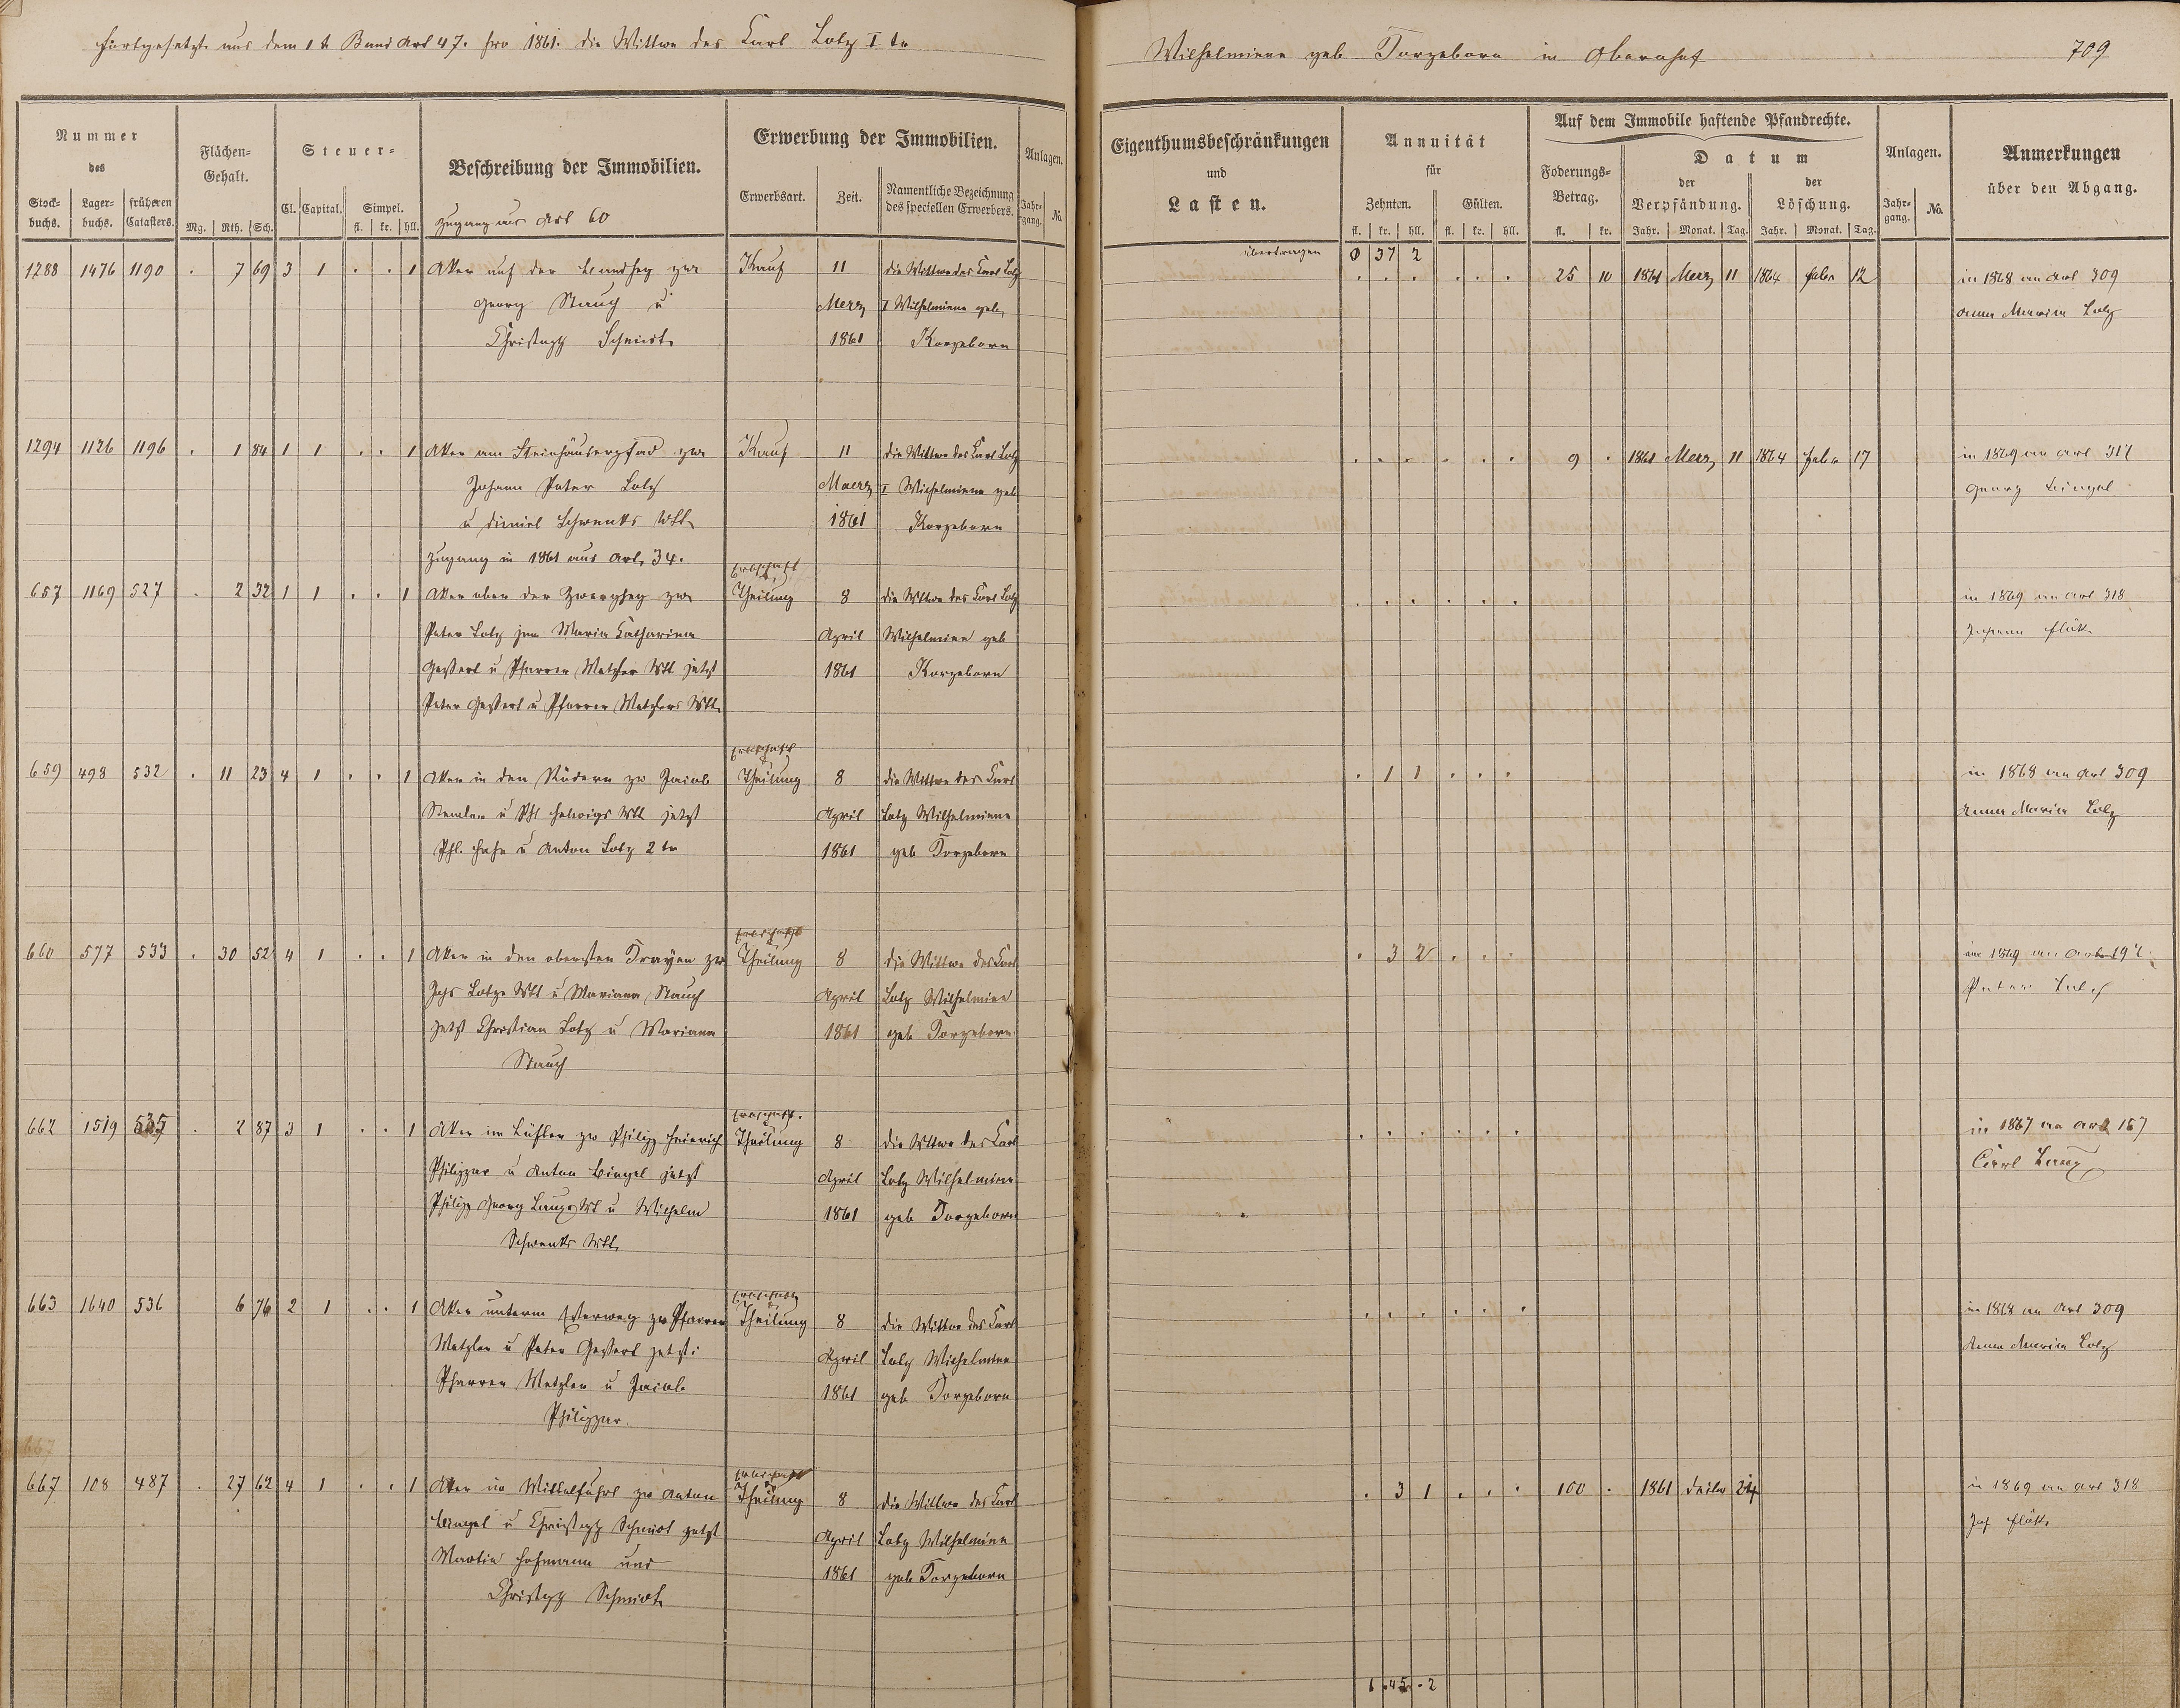 fortgesetzt aus dem 1t Band Art 47. pro 1861. die Wittwe des Carl Lotz I tr
Wilhelmine geb Torgeborn in Obernhof
709
Nummer des
Stockbuchs. Lagerbuchs. früheren Catasters.
Flächen-Gehalt.
Mg. Rth. Sch.
Steuer-
Cl. Capital. Simpel.
fl. kr. hll.
Beschreibung der Immobilien.
Zugang aus Art 60
Erwerbung der Immobilien.
Erwerbsart. Zeit. Namentliche Bezeichnung des speciellen Erwerbers.
Anlagen.
Jahrgang. No.
Eigenthumsbeschränkungen
und
Lasten.
Annuität
für
Zehnten. Gülten.
fl. kr. hll. fl. kr. hll.
Auf dem Immobile haftende Pfandrechte.
Foderungs-Betrag.
fl. kr.
Datum
der Verpfändung. der Löschung.
Jahr. Monat. Tag. Jahr. Monat. Tag.
Anlagen.
Jahrgang. No.
Anmerkungen
über den Abgang.
übertragen 0 37 2
1288 1476 1190 . 7 69 3 1 . . 1 Aker auf der zw Kauf 11 die Wittwe des Carl Lotz . . . . . . 25 10 1861 Merz 11 1864 febr 12 in 1868 an Art 309
Georg Stauch u Merz I Wilhelmine geb, Anna Maria Lotz
Christoph Schmidt 1861 Korgeborn
1294 1126 1196 . 1 84 1 1 . . 1 Aker am Steinhäuserpfad zw Kauf 11 die Wittwe des Carl Lotz . . . . . . 9 . 1861 Merz 11 1864 febr 17 in 1869 an Art 317
Johann Peter Lotz Maerz I Wilhelmine geb Georg Bingel
u Daniel Schwenks Wtl 1861 Korgeborn
Zugang in 1861 aus Art, 34.
Erbschaft
657 1169 527 . 2 32 1 1 . . 1 Aker ober der zw Theilung 8 die Wittwe des Carl Lotz . . . . . . in 1869 an Art 318
Peter Lotz jun Maria Catharina April Wilhelmine geb Johann
u Pfarrer Metzler Wtl jetzt 1861 Korgeborn
Peter u Pfarrer Metzlers Wtl
Erbschaft
659 498 532 . 11 23 4 1 . . 1 Aker in den Rödern zw Jacob Theilung 8 die Wittwe des Carl . 1 1 . . . in 1868 an Art 309
u Phl Helwigs Wtl jetzt April Lotz Wilhelmine Anna Maria Lotz
Phl. Hahn u Anton Lotz 2 tr 1861 geb Torgeborn
Erbschaft
660 577 533 . 30 52 4 1 . . 1 Aker in den obersten zw Theilung 8 die Wittwe des Carl . 3 2 . . . in 1869 an Art
Johs Lotze Wtl u Mariana Stauch April Lotz Wilhelmine Peter Lotz
jetzt Christian Lotz u Mariana 1861 geb Torgeborn
Stauch
Erbschaft.
662 1519 535 . 2 87 3 1 . . 1 Aker im zw Philipp Heinrich Theilung 8 die Wittwe des Carl . . . . . . in 1867 an Art 167
Philippar u Anton Bingel jetzt April Lotz Wilhelmine Carl Lauz
Philipp Georg Wtl u Wilhelm 1861 geb Torgeborn
Schwenks Wtl,
Erbschaft
663 1640 536 6 76 2 1 . . 1 Aker unterm zw Pfarrer Theilung 8 die Wittwe des Carl . . . . . . in 1868 an Art 309
Metzler u Peter jetzt: April Lotz Wilhelmine Anna Maria Lotz
Pfarrer Metzler u Jacob 1861 geb Torgeborn
Philippar
Erbschaft
667 108 487 . 27 62 4 1 . . 1 Aker im zw Anton Theilung 8 die Wittwe des Carl . 3 1 . . . 100 . 1861 24 in 1869 an Art 318
Bingel u Christoph Schmidt jetzt April Lotz Wilhelmine Joh
Martin Hofmann und 1861 geb Torgeborn
Christoph Schmidt
6 . 45 . 2